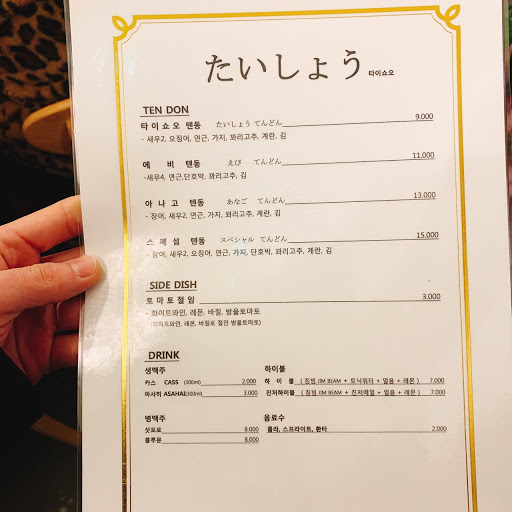 たいしょう 타이쇼오
TEN DON
타이쇼오 텐동 たいしょう てんどん 9.000
- 새우2, 오징어, 연근, 가지, 꽈리고추, 계란, 김
에 비 텐동 えび てんどん 11.000
-새우4, 연근,단호박, 꽈리고추, 계란, 김
아나고 텐동 あなご てんどん 13.000
- 장어, 새우2, 연근, 가지, 꽈리고추, 계란, 김
스페셜 텐동 スペシャル てんどん 15.000
- 장어, 새우2, 오징어, 연근, 가지, 단호박, 꽈리고추, 계란, 김
SIDE DISH
토마토절임 3.000
- 화이트와인, 레몬, 바질, 방울토마토
(화이트와인, 레몬, 바질로 절인 방울토마토)
DRINK
생맥주
카스 CASS (300ml) 2.000
아사히 ASAHAI(300ml) 3.000
병맥주
삿포로 8.000
블루문 8.000
하이볼
하 이 볼 ( 짐빔JIM BEAM + 토닉워터 + 얼음 + 레몬 ) 7.000
진저하이볼 ( 짐빔JIM BEAM + 진저에일 + 얼음 + 레몬 ) 7.000
음료수
콜라, 스프라이트, 환타 2.000